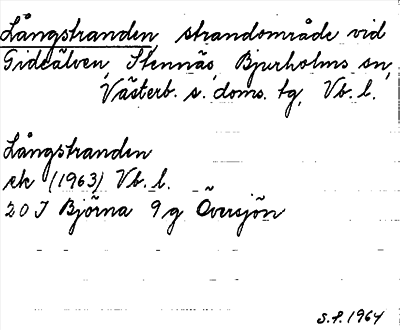 Långstranden, strandområde vid
Gideälven, Stennäs, Bjurholms sn,
Västerb. s. doms. tg, Vb. l.
Långstranden
ek (1963) Vb. l.
20 J Björna 9 g Översjön
S.P. 1964